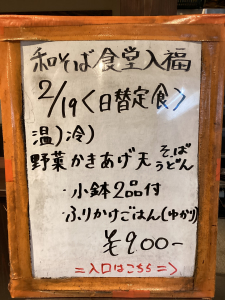 和そば食堂入福
2/19〈日替定食〉
温）冷）
野菜かきあげ天そばうどん
・小鉢2品付
・ふりかけごはん(ゆかり)
¥900-
=入口はこちら=>